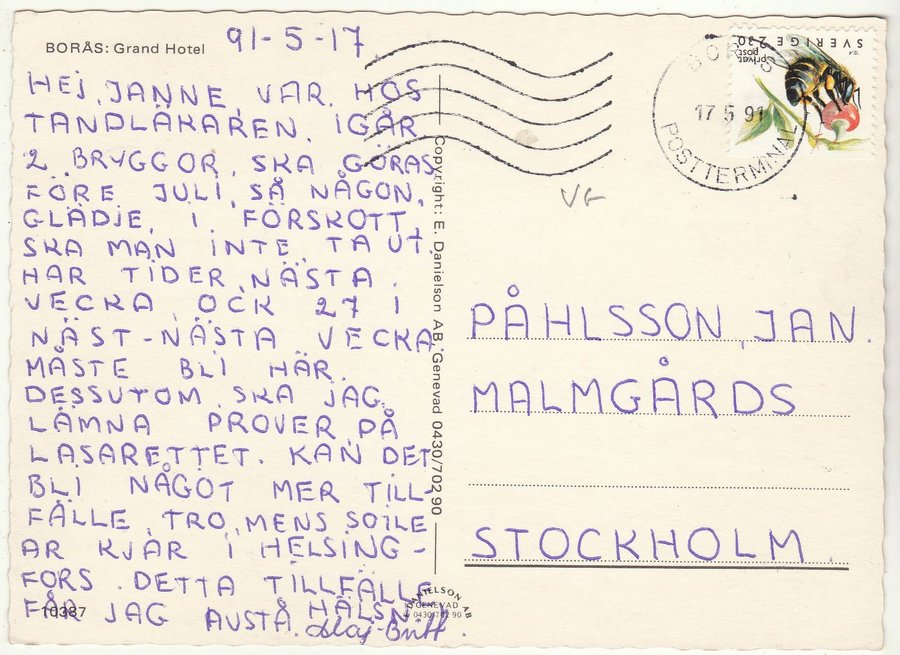 BORÅS: Grand Hotel
91-5-17
HEJ, JANNE, VAR. HOS
TANDLÄKAREN. IGÅR
2. BRYGGOR, SKA GÖRAS
FÖRE JULI, SÅ NÅGON,
GLÄDJE, I FÖRSKOTT,
SKA MAN INTE, TA UT.
HAR TIDER, NÄSTA.
VECKA, OCK 27 I
NÄST-NÄSTA VECKA
MÅSTE BLI HÄR.
DESSUTOM SKA JAG,
LÄMNA PROVER, PÅ
LASARETTET. KAN DET
BLI NÅGOT MER TILL-
FÄLLE, TRO, MENS SOILE
ÄR KVAR I HELSING-
FORS. DETTA TILLFÄLLE
FÅR JAG AVSTÅ. HÄLSN.
Maj-Britt.
10387
Copyright: E. Danielson AB, Genevad 0430/702 90
DANIELSON AB
GENEVAD
0430/702 90
privat
post
SVERIGE 230
17 5 91
POSTTERMINAL
VG
PÅHLSSON, JAN.
MALMGÅRDS
STOCKHOLM.